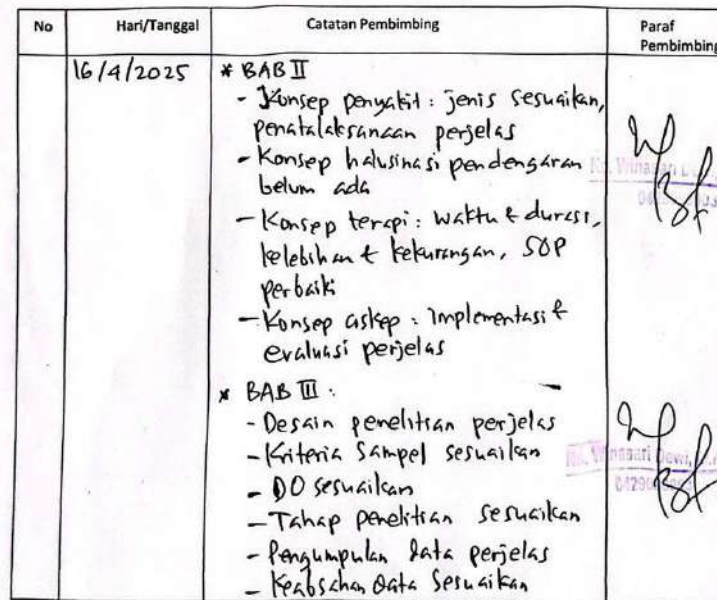 No Hari/Tanggal Catatan Pembimbing Paraf
Pembimbing
16/4/2025 * BAB II
- Konsep penyakit : jenis sesuaikan,
penatalaksanaan perjelas
- Konsep halusinasi pendengaran
belum ada
- Konsep terapi : waktu & durasi,
kelebihan & kekurangan, SOP
perbaiki
- Konsep askep : implementasi &
evaluasi perjelas
* BAB III :
- Desain penelitian perjelas
- Kriteria Sampel sesuaikan
- DO sesuaikan
- Tahap penelitian sesuaikan
- Pengumpulan data perjelas
- Keabsahan data sesuaikan